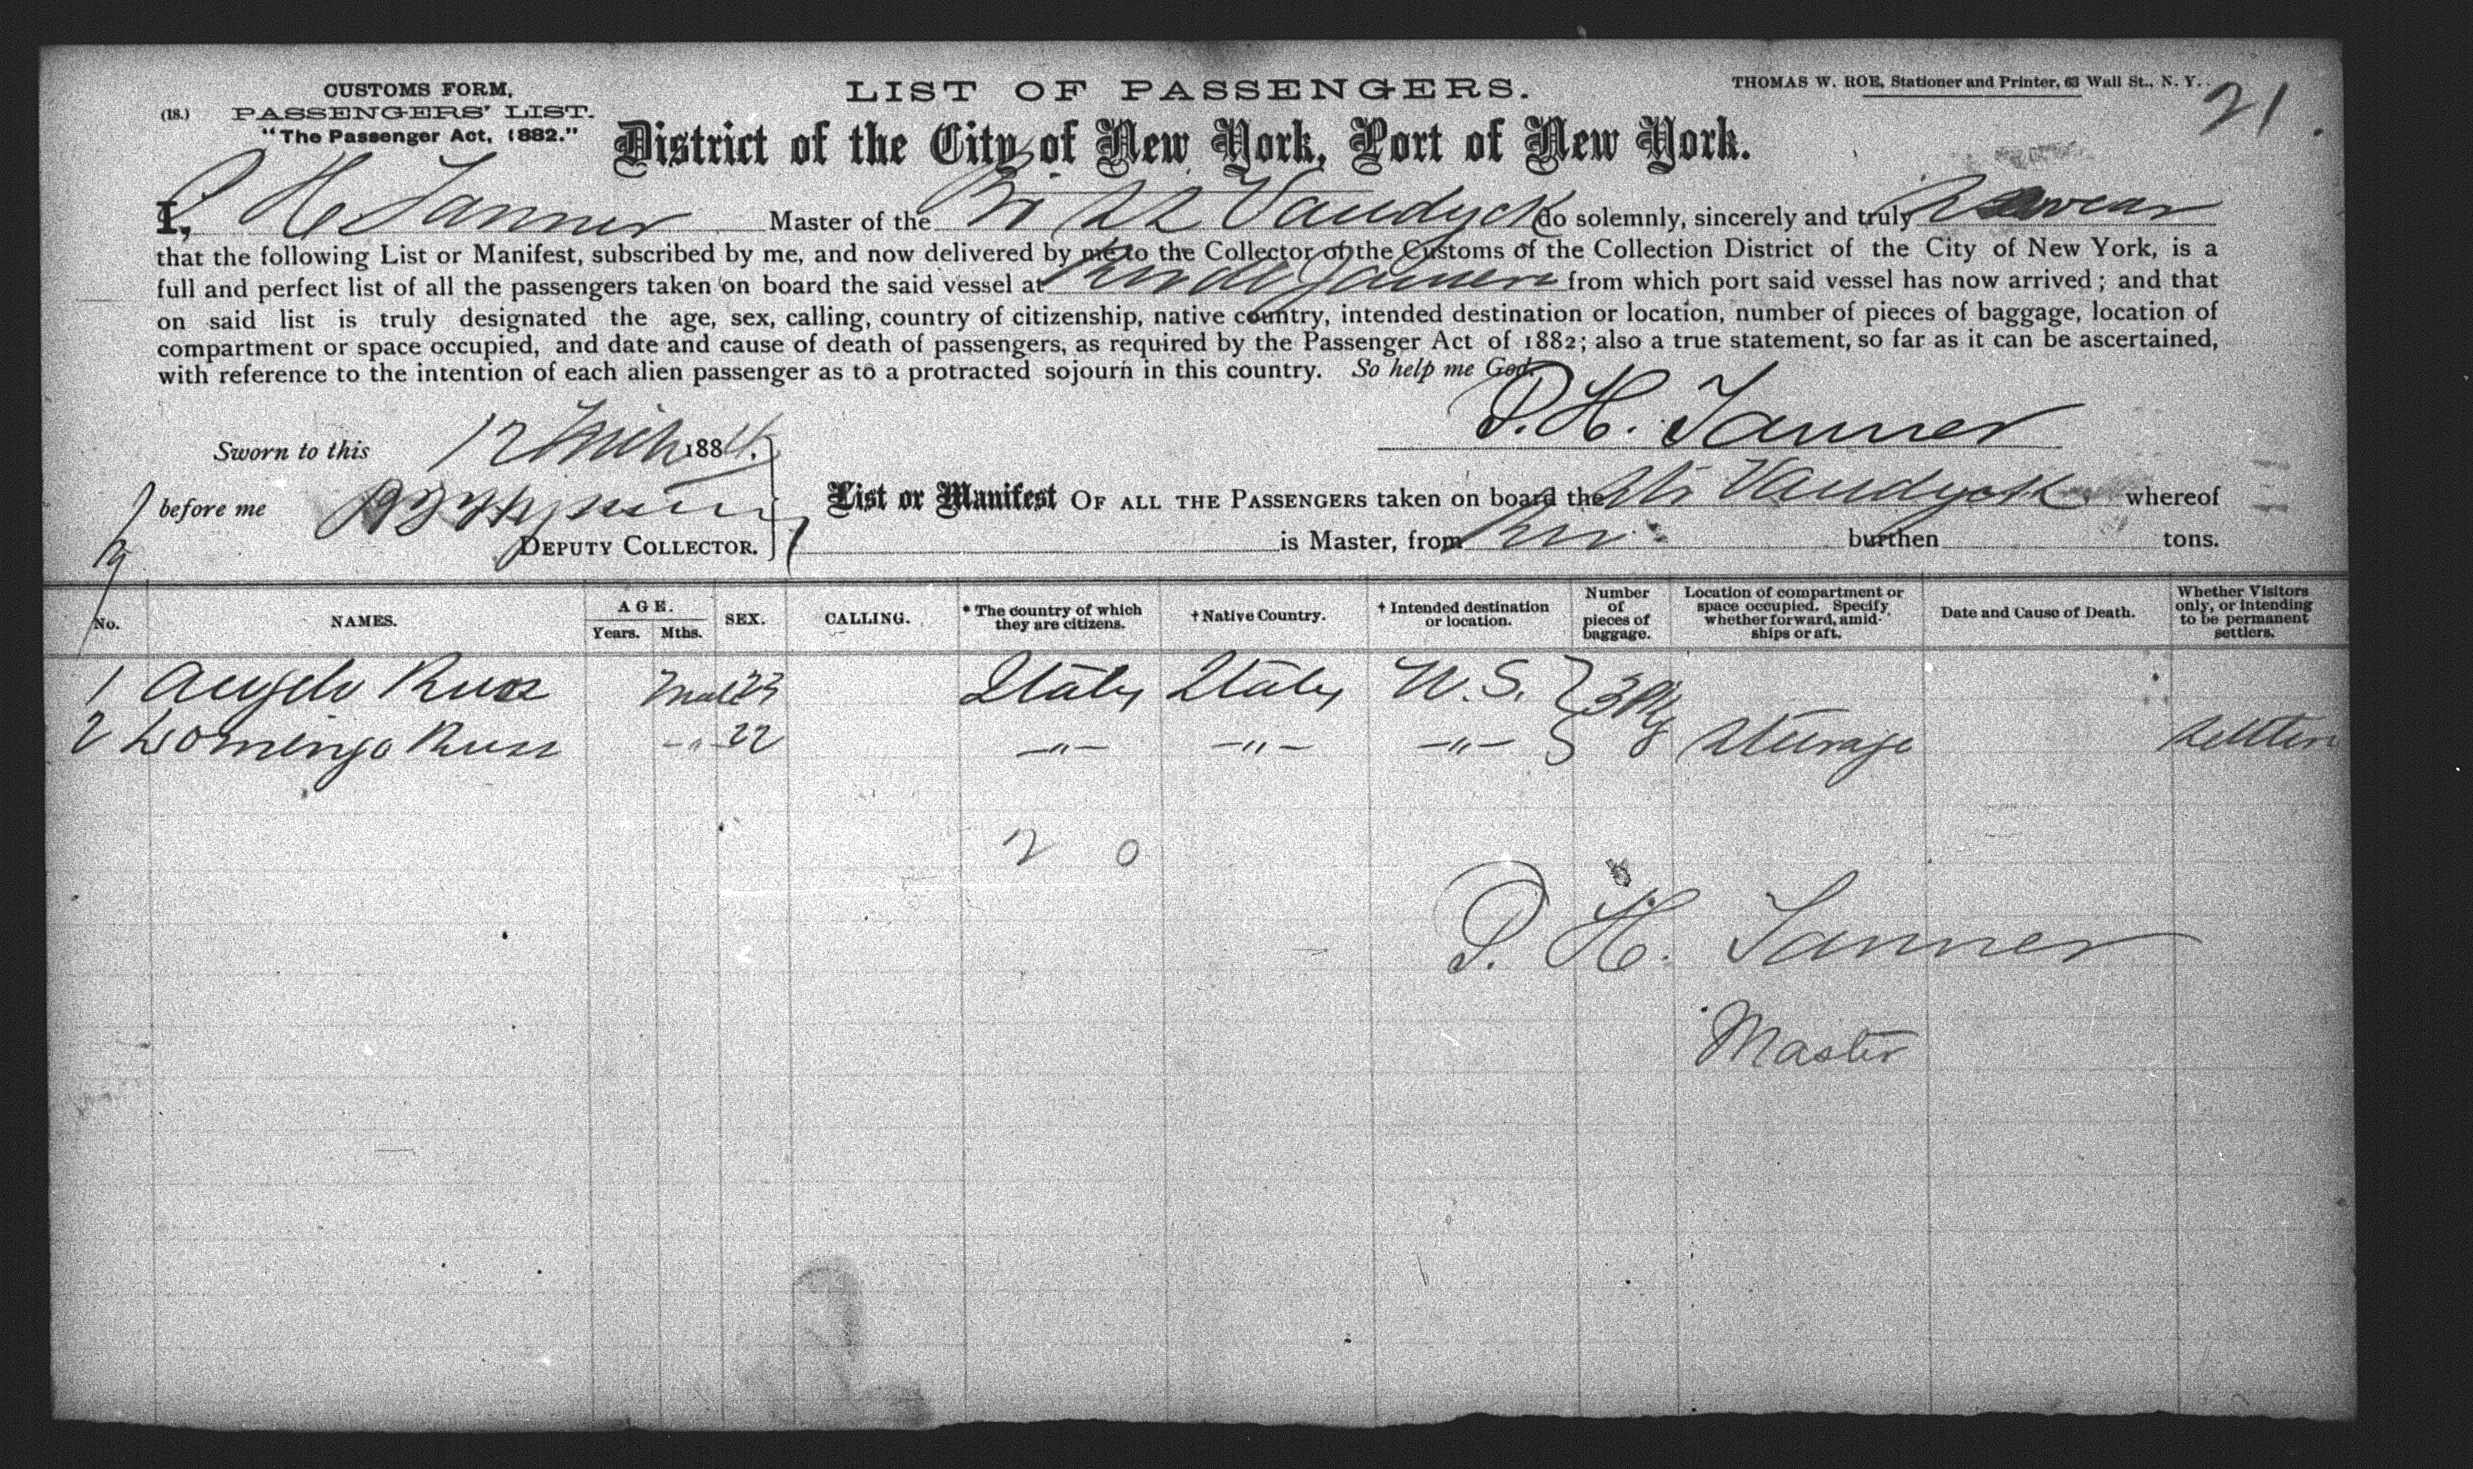 CUSTOMS FORM,
(18.) PASSENGERS' LIST.
"The Passenger Act, 1882."
LIST OF PASSENGERS.
THOMAS W. ROE, Stationer and Printer, 63 Wall St., N. Y.
21
District of the City of New York, Port of New York.
I, P H Tanner Master of the Br SS Vandyck do solemnly, sincerely and truly swear
that the following List or Manifest, subscribed by me, and now delivered by me to the Collector of the Customs of the Collection District of the City of New York, is a
full and perfect list of all the passengers taken on board the said vessel at Rio de Janeiro from which port said vessel has now arrived; and that
on said list is truly designated the age, sex, calling, country of citizenship, native country, intended destination or location, number of pieces of baggage, location of
compartment or space occupied, and date and cause of death of passengers, as required by the Passenger Act of 1882; also a true statement, so far as it can be ascertained,
with reference to the intention of each alien passenger as to a protracted sojourn in this country. So help me God.
P. H. Tanner
Sworn to this 12 March 1884.
before me
DEPUTY COLLECTOR.
List or Manifest OF ALL THE PASSENGERS taken on board the Str Vandyck whereof
is Master, from Rio burthen tons.
No. NAMES. AGE. Years. Mths. SEX. CALLING. * The country of which they are citizens. † Native Country. † Intended destination or location. Number of pieces of baggage. Location of compartment or space occupied. Specify whether forward, amidships or aft. Date and Cause of Death. Whether Visitors only, or intending to be permanent settlers.
1 Angelo Russ Male 23 Italy Italy U. S. 3 Pkg
2 Domingo Russ -"- 22 -"- -"- -"- Steerage Settlers
2 0
P. H. Tanner
Master